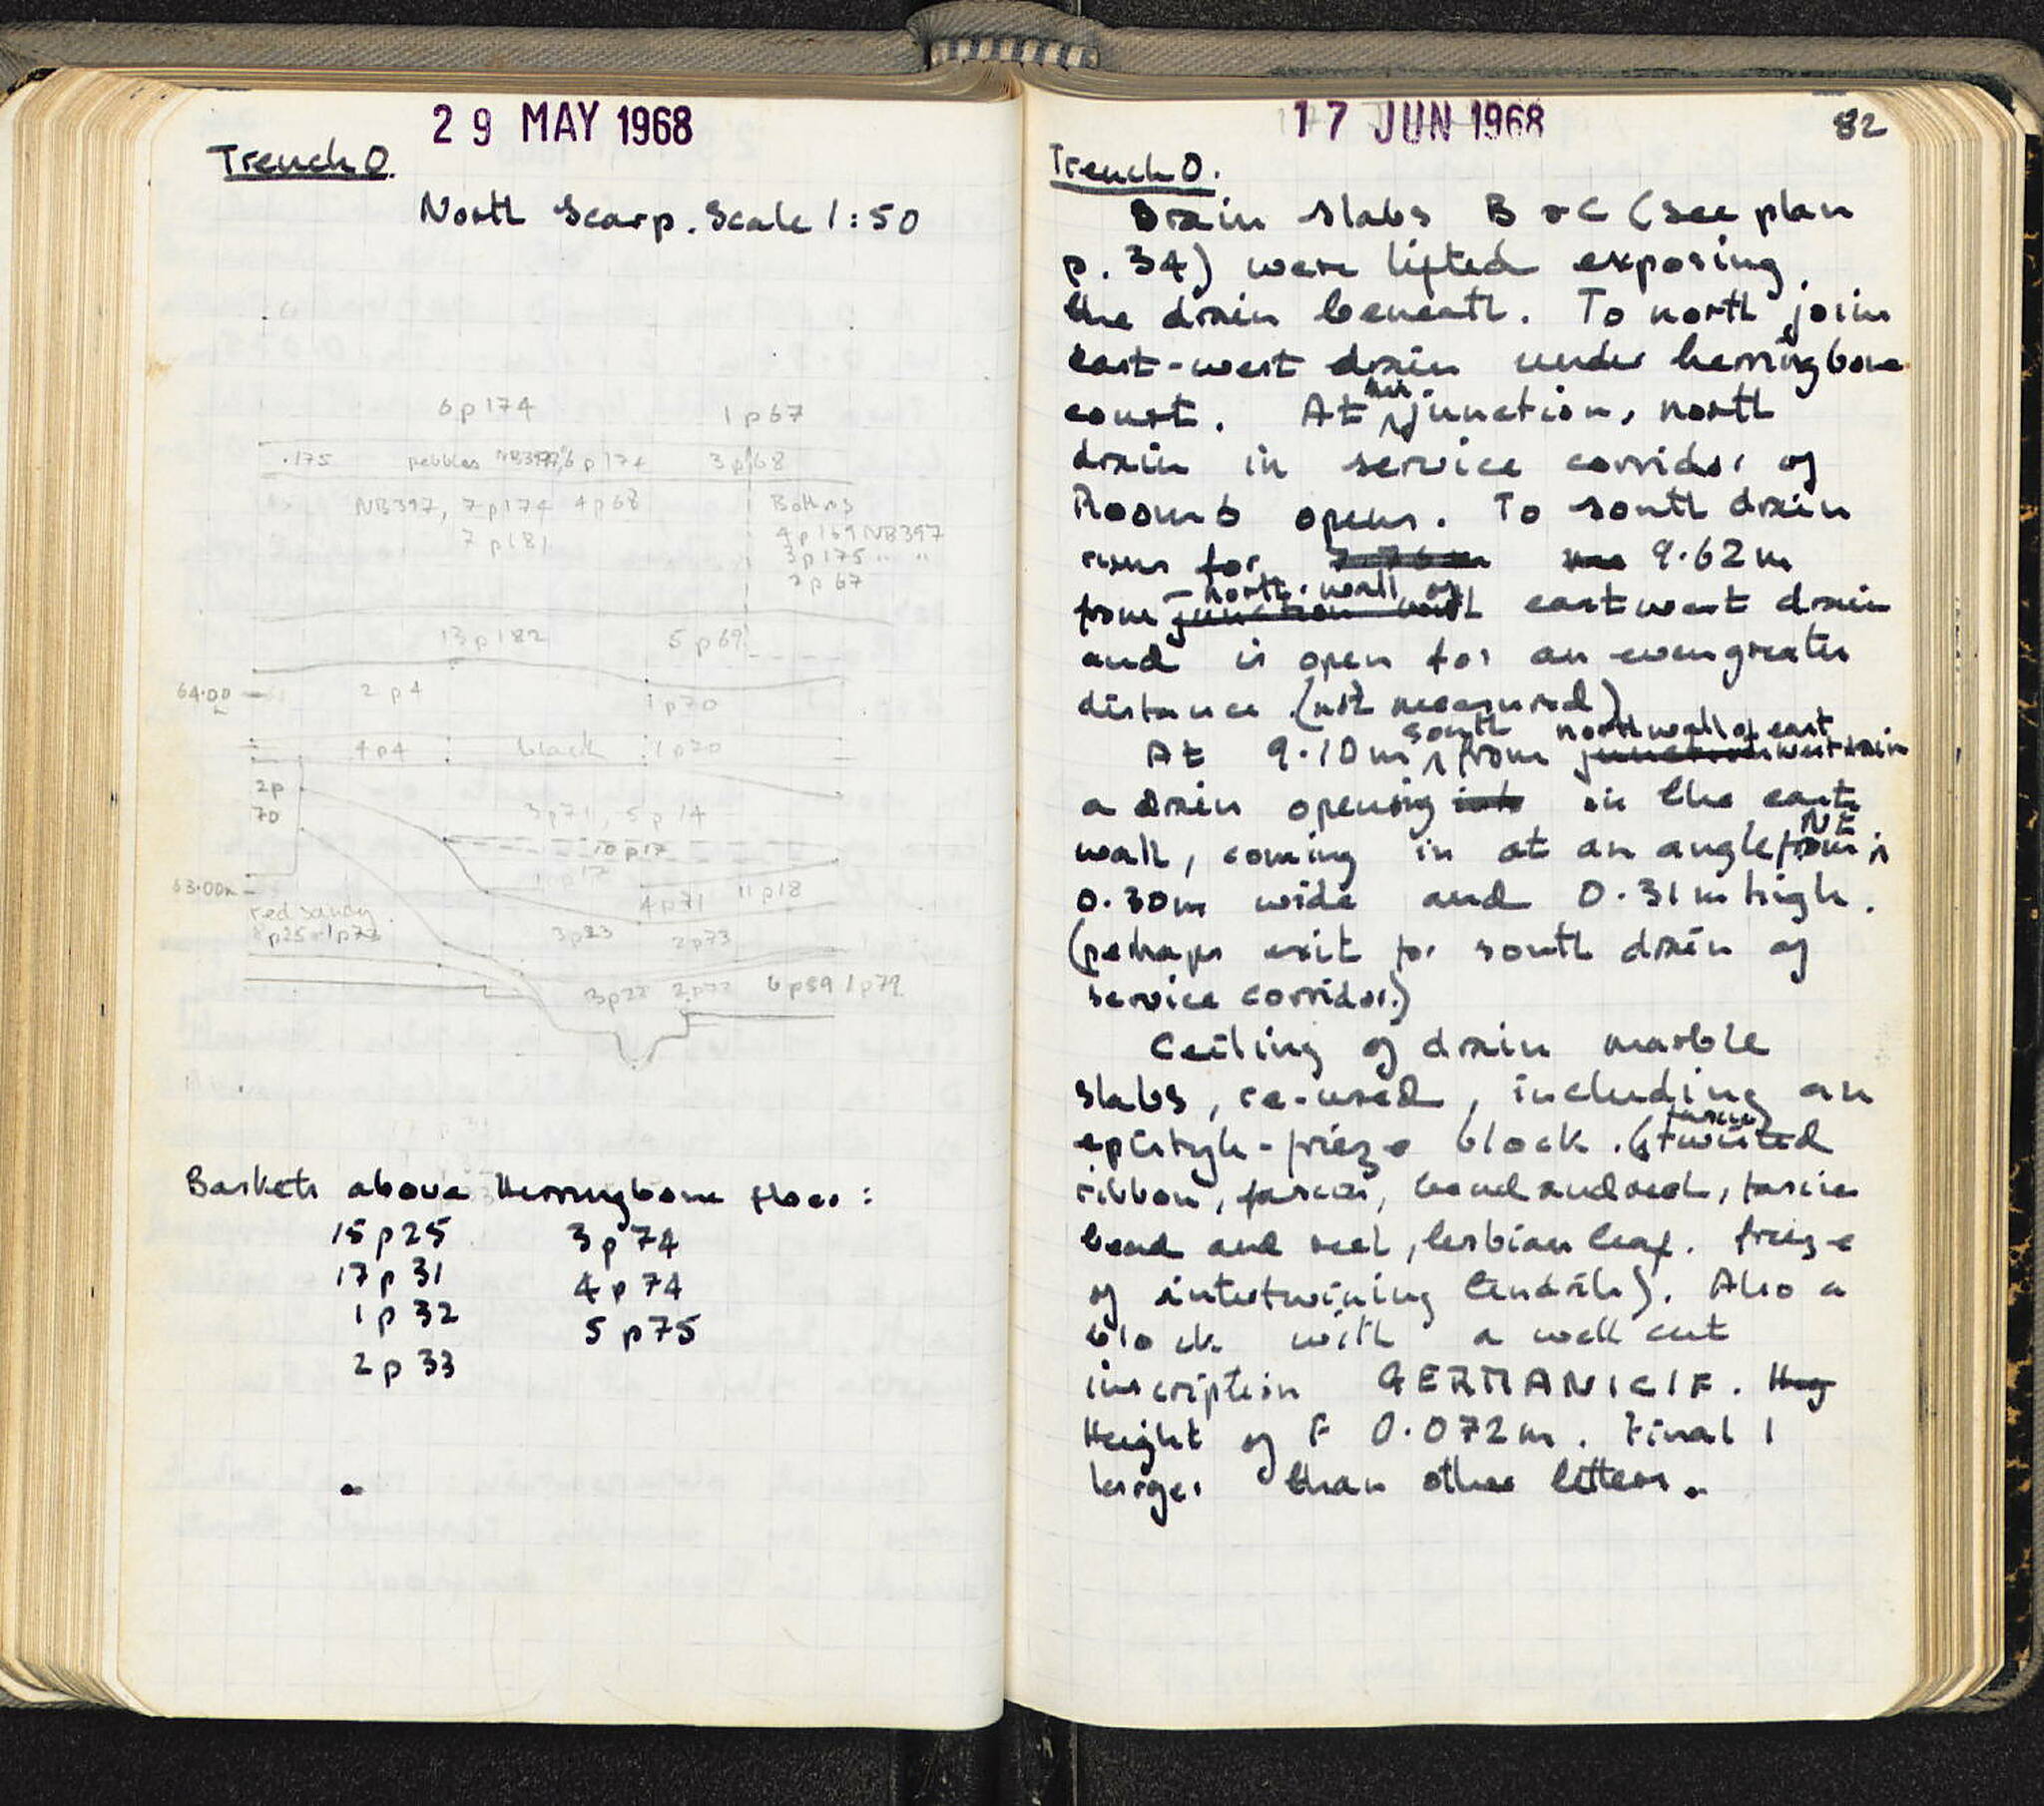 29 MAY 1968
Trench O.
North Scarp. Scale 1:50
6p174 1p67
.175 pebbles 6p174 3p68
NB397, 7p174 4p68 Bottros
7p181 4p169 NB397
3p175 " "
2p67
13p182 5p69
64.00 2p4 1p70
4p4 black 1p70
2p
70 3p71, 5p14
10p17
63.00m 4p71 11p18
red sandy
3p23 2p73
3p22 6p59 1p79
Baskets above Herringbone floor:
15p25 3p74
17p31 4p74
1p32 5p75
2p33
17 JUN 1968
82
Trench O.
Drain slabs B & C (see plan
p. 34) were lifted exposing
the drain beneath. To north join
east-west drain under herringbone
court. At this junction, north
drain in service corridor of
Room 6 opens. To south drain
runs for 9.62m
from north wall of eastwest drain
and is open for an even greater
distance (not measured)
At 9.10m south from north wall of east west drain
a drain opening in the east
wall, coming in at an angle from NE
0.30m wide and 0.31m high.
(perhaps exit for south drain of
service corridor.)
Ceiling of drain marble
slabs, re-used, including an
epistyle-frieze block. (fascia, twisted
ribbon, fascia, bead and reel, fascia
bead and reel, lesbian leaf. frieze
of intertwining tendrils). Also a
block with a well cut
inscription GERMANICI F. Heig
Height of F 0.072m. Final I
larger than other letters.